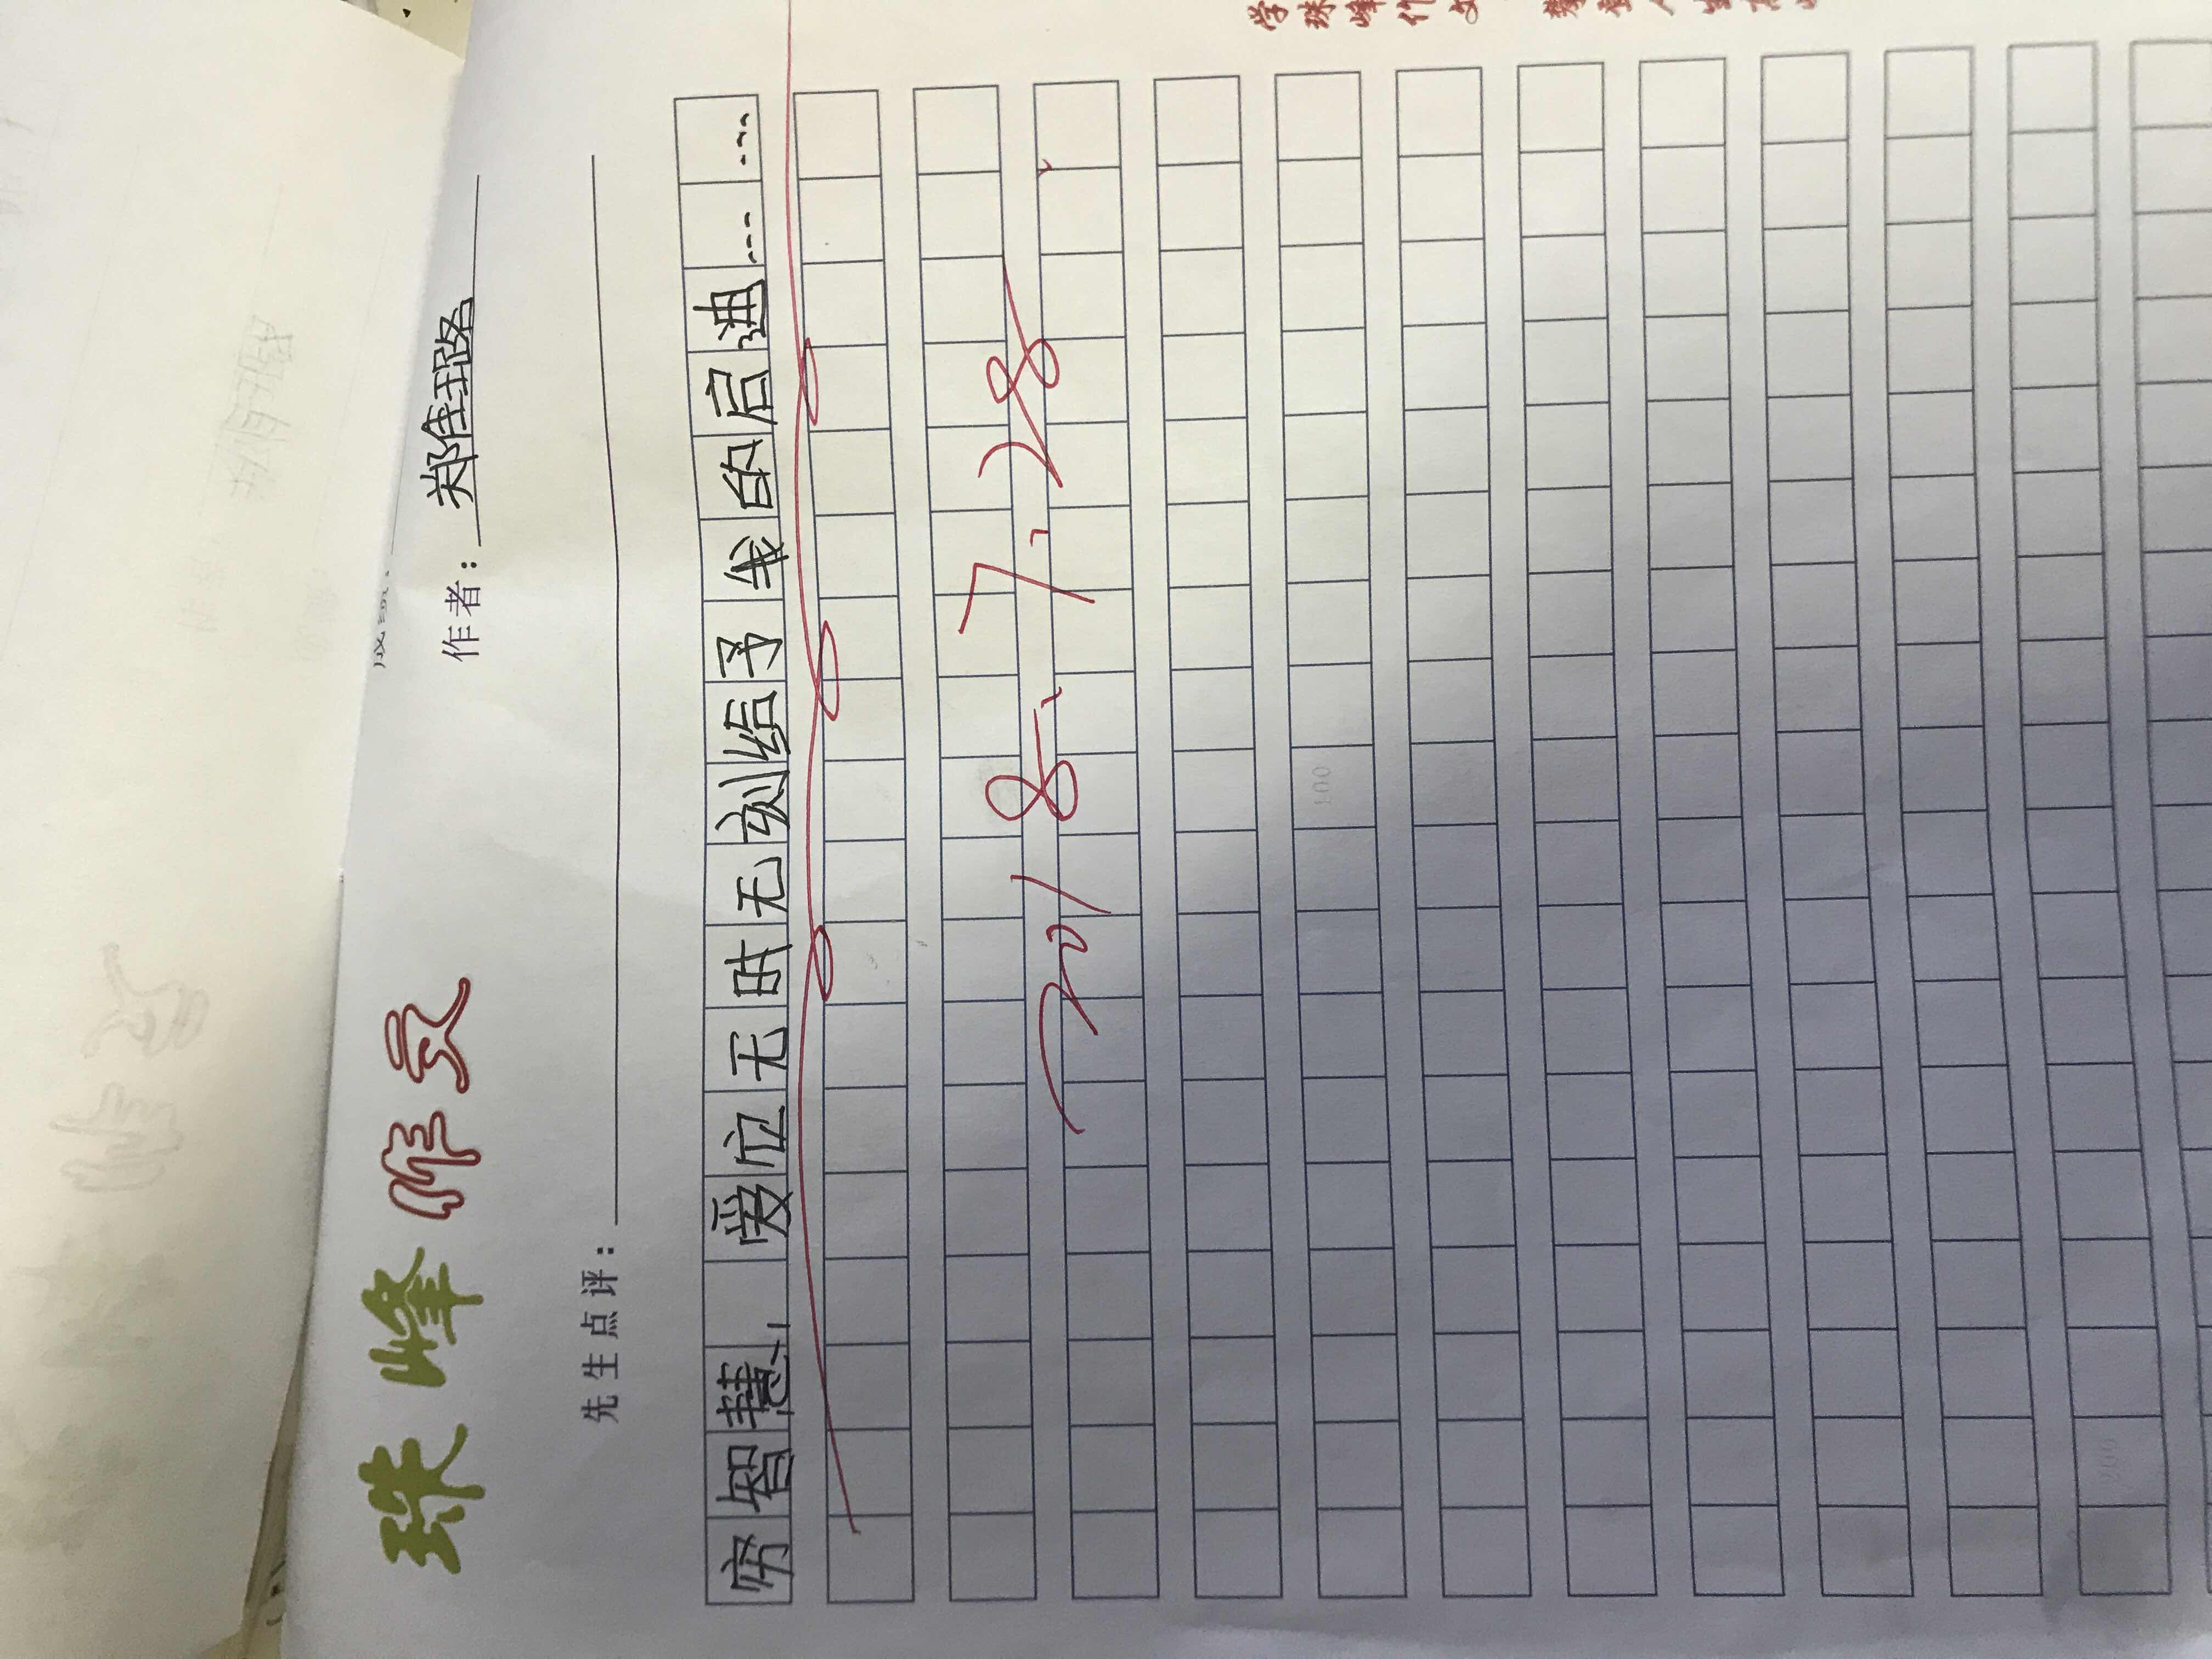 珠峰作文
作者：郑佳璐
先生点评：
穷智慧，爱应无时无刻给予我的启迪……
2018、7、28
100
200